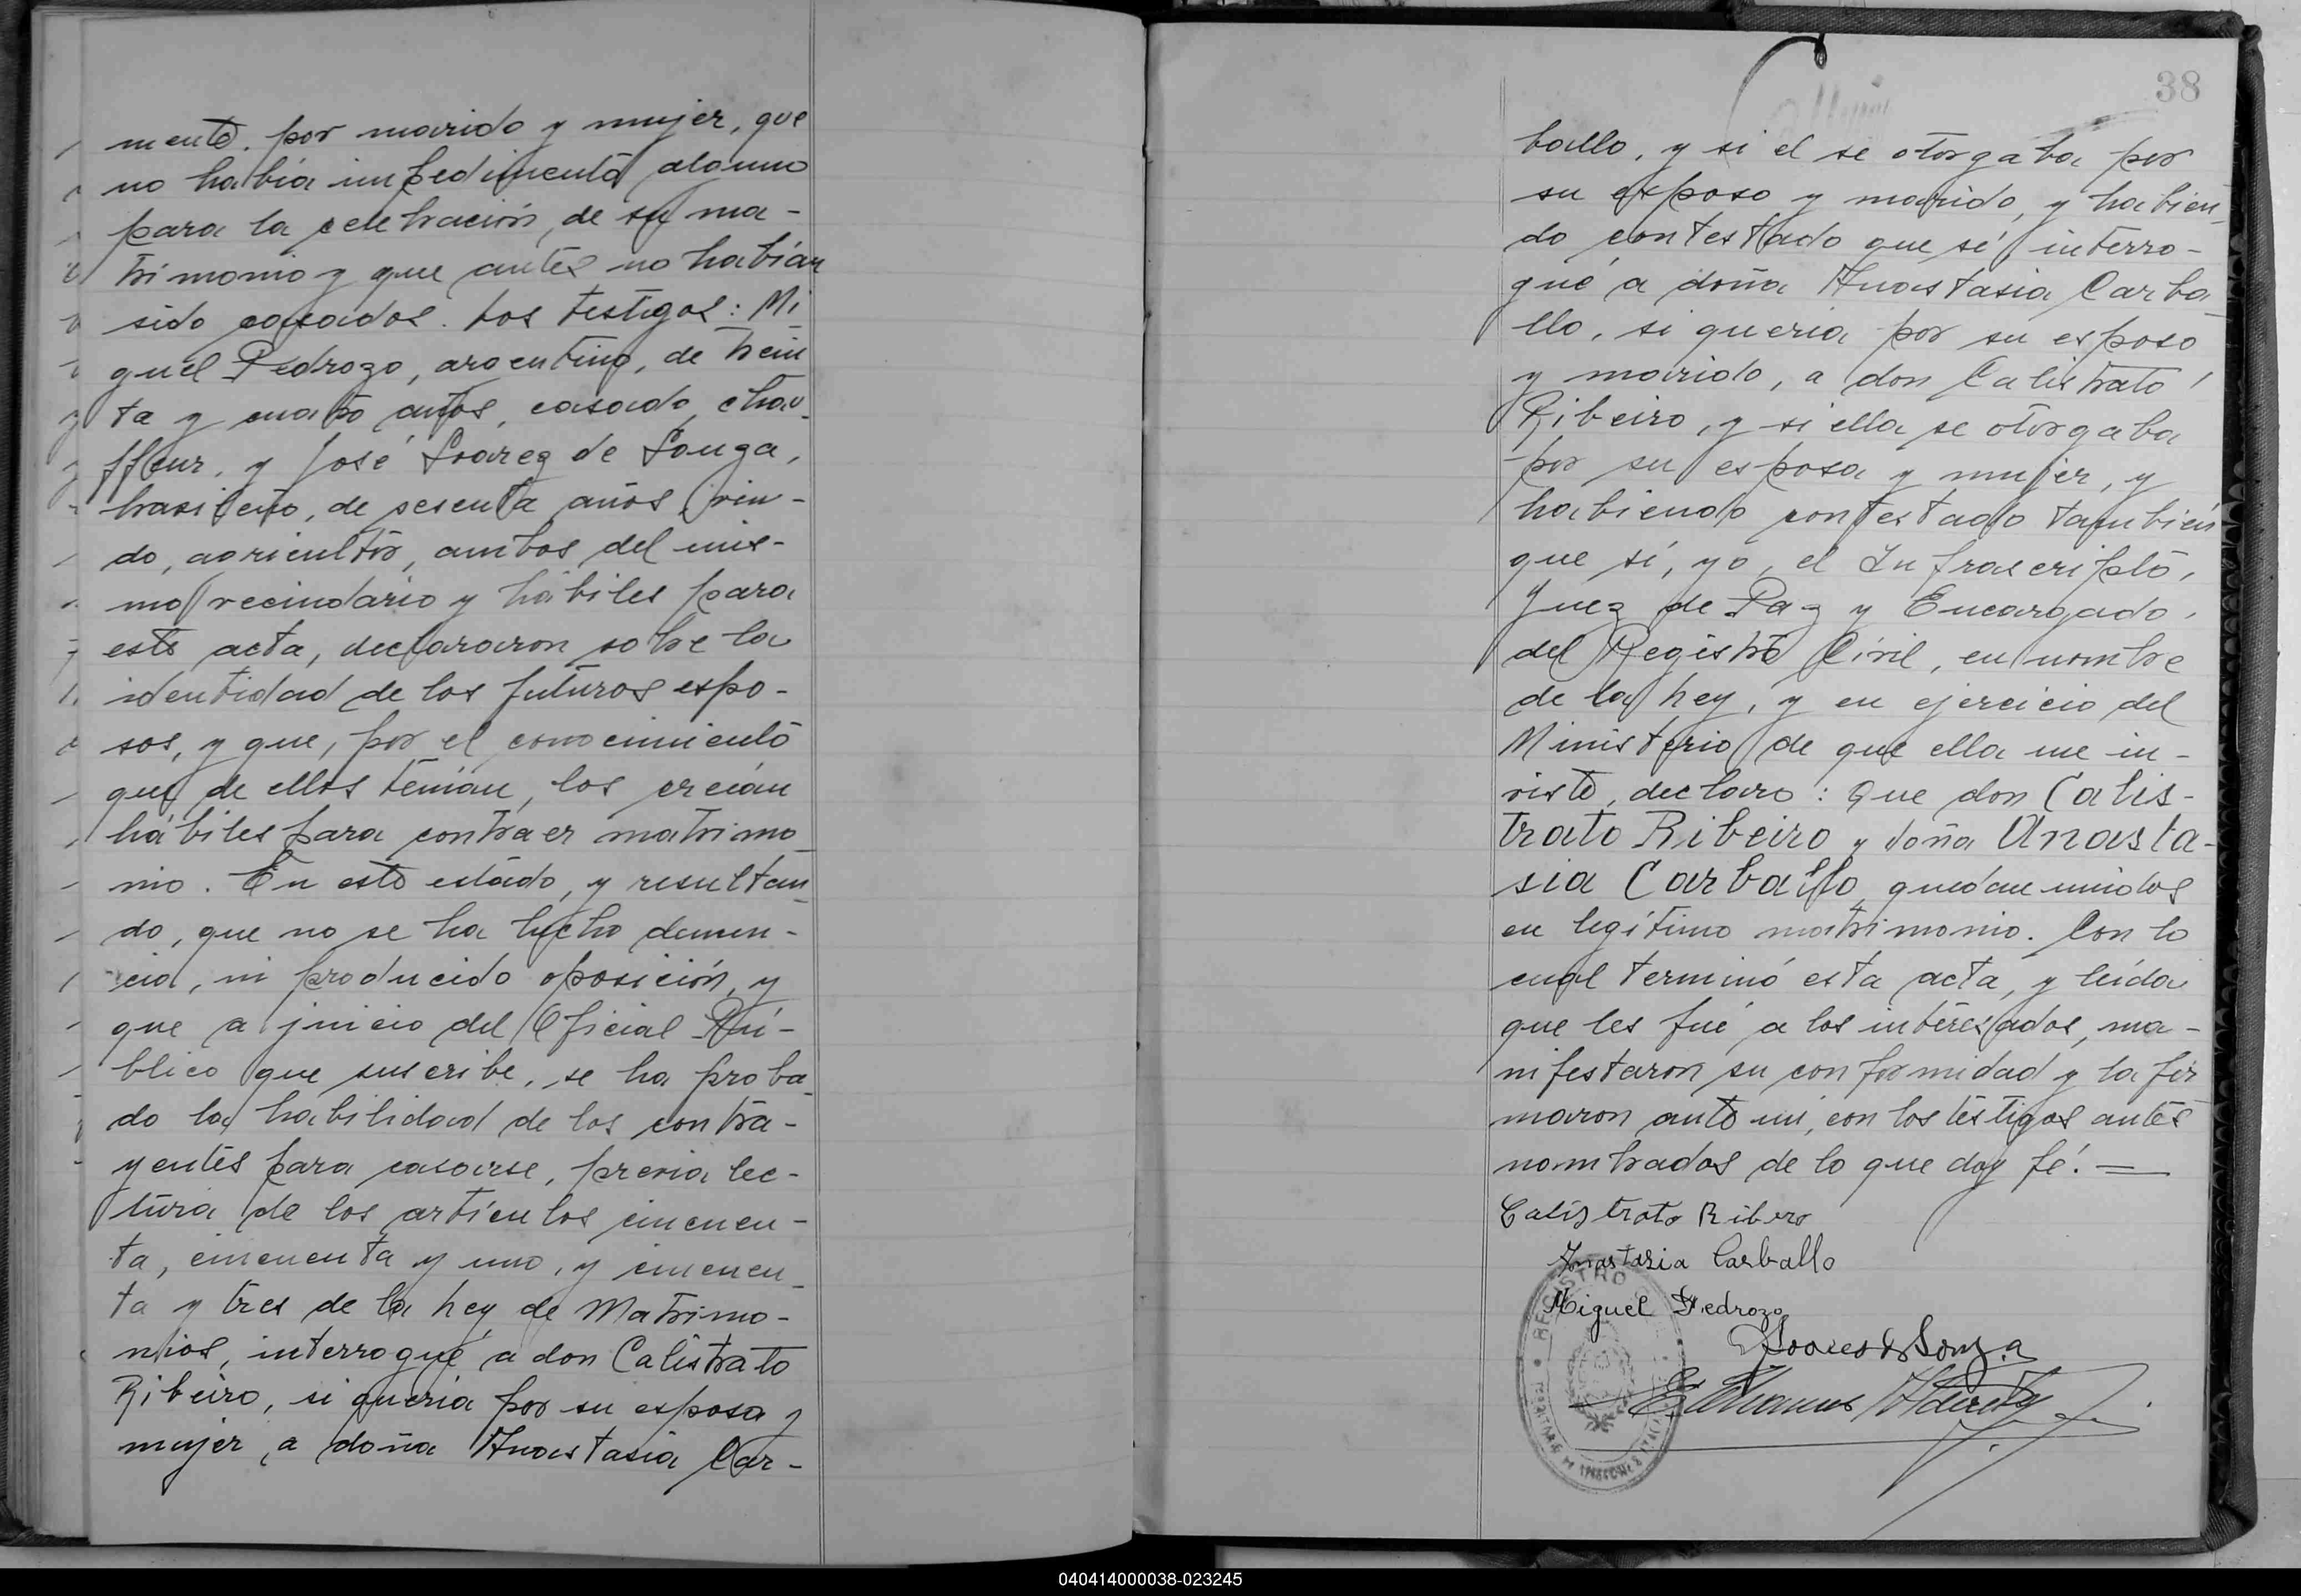 mente. por marido y mujer, que
no había impedimento alguno
para la celebración, de su ma-
trimonio y que antes no habían
sido casados. Los testigos: Mi-
guel Pedrozo, argentino, de trein
ta y cuatro años, casado, chau-
ffeur, y José Soarez de Souza,
brasileño, de sesenta años, viu-
do, agricultor, ambos del mis-
mo vecindario y hábiles para
este acta, declararon sobre la
identidad de los futuros espo-
sos, y que, por el conocimiento
que de ellos tenían, los creían
hábiles para contraer matrimo-
nio. En este estado, y resultan-
do, que no se ha hecho denun-
cia, ni producido oposición, y
que a juicio del Oficial Pú-
blico que suscribe, se ha proba-
do la habilidad de los contra-
yentes para casarse, previa lec-
tura de los artículos cincuen-
ta, cincuenta y uno, y cincuen-
ta y tres de la Ley de Matrimo-
nios, interrogué a don Calistrato
Ribeiro, si quería por su esposa y
mujer, a doña Anastasia Car-
38
ballo, y si el se otorgaba por
su esposo y marido, y habien-
do contestado que sí, interro-
gué a doña Anastasia Carba-
llo, si quería por su esposo
y marido, a don Calistrato
Ribeiro, y si ella se otorgaba
por su esposa y mujer, y
habiendo contestado también
que sí, yo, el Infrascripto,
Juez de Paz y Encargado,
del Registro Civil, en nombre
de la Ley, y en ejercicio del
Ministerio de que ella me in-
viste, declaro: Que don Calis-
trato Ribeiro y doña Anasta-
sia Carballo, quedan unidos
en legítimo matrimonio. Con lo
cual terminó esta acta, y leída
que les fué a los interesados, ma-
nifestaron su conformidad y la fir
maron ante mí, con los testigos antes
nombrados de lo que doy fé. —
Calistrato Ribero
Anastasia Carballo
Miguel Pedrozo
Soares d Souza
REGISTRO
040414000038-023245